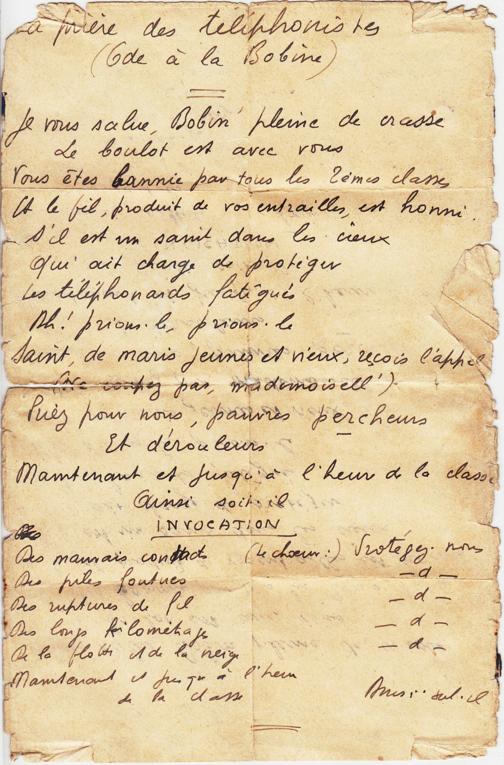 La prière des téléphonistes
(Ode à la Bobine)
Je vous salue, Bobin' pleine de crasse
Le boulot est avec vous
Vous êtes bannie par tous les 2èmes classes
Et le fil, produit de vos entrailles, est honni.
S'il est un saint dans les cieux
Qui ait charge de protéger
Les téléphonards fatigués
Ah! prions-le, prions-le
Saint, de maris jeunes et vieux, reçois l'appel
(Ne coupez pas, mademoisell')
Priez pour nous, pauvres percheurs
Et dérouleurs
Maintenant et jusqu'à l'heur de la classe
Ainsi soit-il
INVOCATION
Des mauvais contacts (le chœur:) Protégez-nous
Des piles foutues — d —
Des ruptures de fil — d —
Des longs kilométrage — d —
De la flotte et de la neige — d —
Maintenant et jusqu'à l'heur
de la classe Ainsi-soit-il